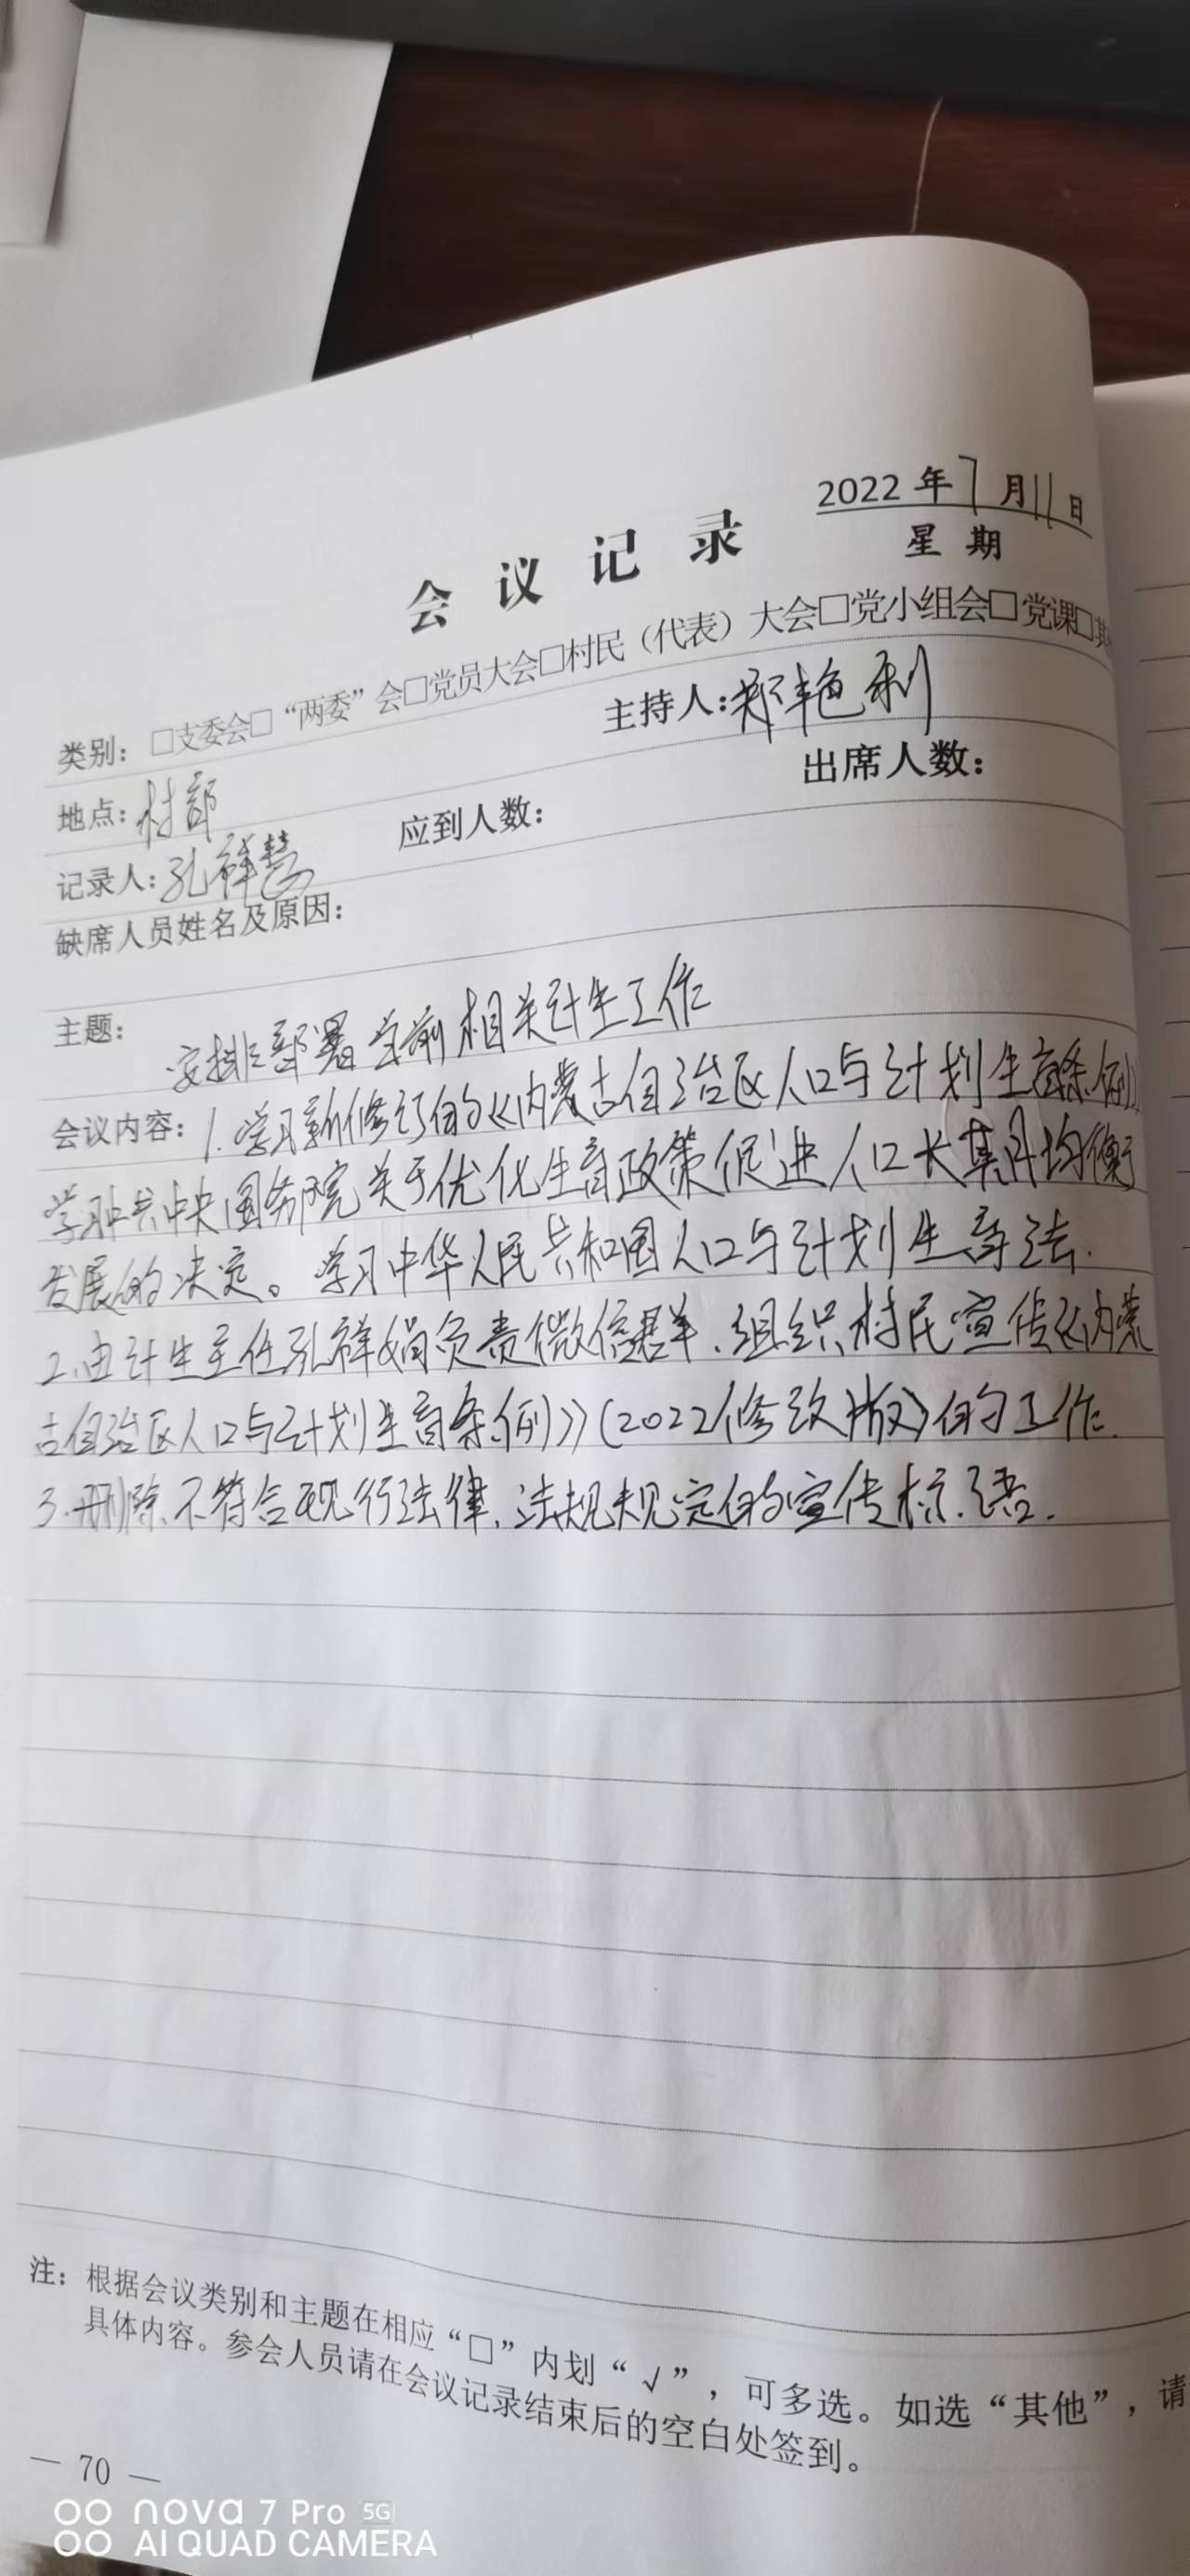 2022 年 7 月 11 日
星 期
会 议 记 录
类别：□支委会□“两委”会□党员大会□村民（代表）大会□党小组会□党课□其
地点：村部 主持人：郑艳利
记录人：孔祥慧 应到人数： 出席人数：
缺席人员姓名及原因：
主题：安排部署当前相关计生工作
会议内容：1.学习新修订的《内蒙古自治区人口与计划生育条例》
学习中共中央国务院关于优化生育政策促进人口长期均衡
发展的决定。学习中华人民共和国人口与计划生育法.
2.由计生主任孔祥娟负责微信群、组织村民宣传《内蒙
古自治区人口与计划生育条例》(2022修改版)的工作.
3.删除不符合现行法律、法规规定的宣传标语.
注：根据会议类别和主题在相应“□”内划“√”，可多选。如选“其他”，请
具体内容。参会人员请在会议记录结束后的空白处签到。
— 70 —
nova 7 Pro 5G
AI QUAD CAMERA